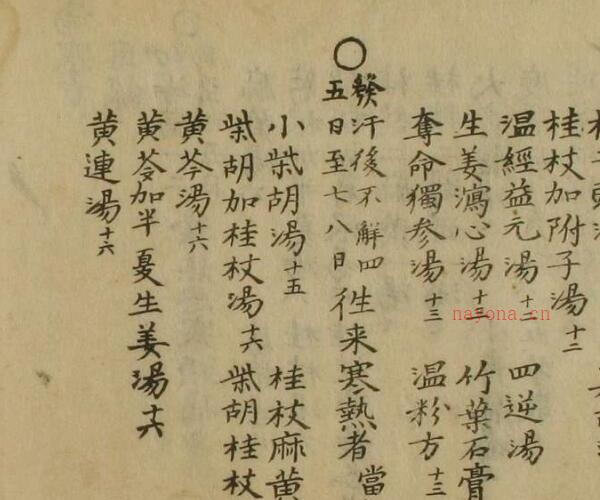 桂枝加附子湯 十二
温經益元湯 十二 四逆湯
生姜瀉心湯 十三 竹葉石膏
奪命獨参湯 十三 温粉方 十三
○發汗後不解四
五日至七八日
徃来寒熱者 當
小柴胡湯 十五 桂枝麻黄
柴胡加桂枝湯 十六 柴胡桂枝
黄芩湯 十六
黄芩加半夏生姜湯 十六
黄連湯 十六
nayona.cn